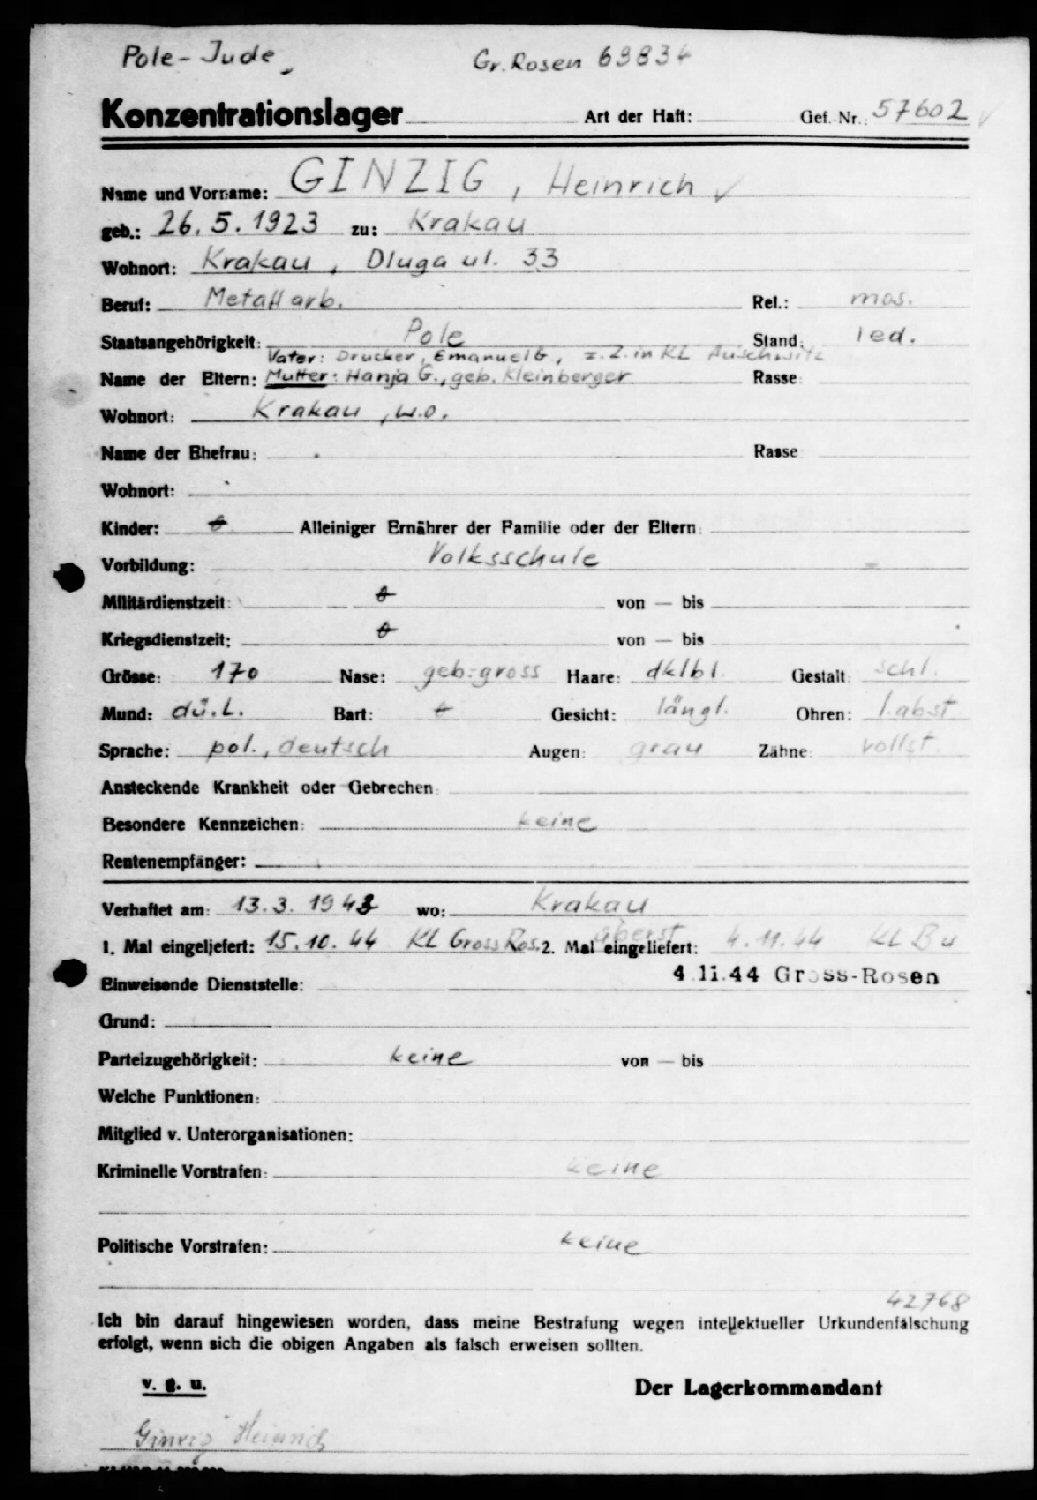 Pole-Jude Gr. Rosen 69834
Konzentrationslager Art der Haft: Gef. Nr.: 57602
Name und Vorname: GINZIG, Heinrich
geb.: 26.5.1923 zu: Krakau
Wohnort: Krakau, Dluga ul. 33
Beruf: Metallarb. Rel.: mos.
Staatsangehörigkeit: Pole Stand: led.
Vater: Drucker, Emanuel G., z.Z. in KL Auschwitz
Name der Eltern: Mutter: Hanja G., geb. Kleinberger Rasse:
Wohnort: Krakau, w.o.
Name der Ehefrau: Rasse:
Wohnort:
Kinder: 0 Alleiniger Ernährer der Familie oder der Eltern:
Vorbildung: Volksschule
Militärdienstzeit: 0 von — bis
Kriegsdienstzeit: 0 von — bis
Grösse: 170 Nase: geb.-gross Haare: dklbl. Gestalt: schl.
Mund: dü.L. Bart: 0 Gesicht: längl. Ohren: l.abst.
Sprache: pol., deutsch Augen: grau Zähne: vollst.
Ansteckende Krankheit oder Gebrechen:
Besondere Kennzeichen: keine
Rentenempfänger:
Verhaftet am: 13.3.1943 wo: Krakau
1. Mal eingeliefert: 15.10.44 KL Gross Ros. 2. Mal eingeliefert: überst. 4.11.44 KL Bu
Einweisende Dienststelle: 4.11.44 Gross-Rosen
Grund:
Parteizugehörigkeit: keine von — bis
Welche Funktionen:
Mitglied v. Unterorganisationen:
Kriminelle Vorstrafen: keine
Politische Vorstrafen: keine
42768
Ich bin darauf hingewiesen worden, dass meine Bestrafung wegen intellektueller Urkundenfälschung
erfolgt, wenn sich die obigen Angaben als falsch erweisen sollten.
v. g. u. Der Lagerkommandant
Ginzig Heinrich